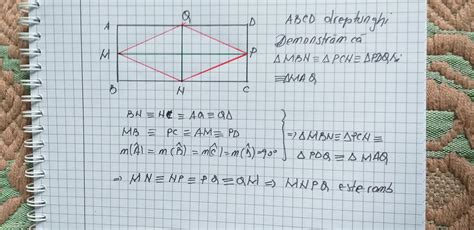 A Q D
M P
B N C
ABCD dreptunghi
Demonstrăm că
△MBN ≡ △PCN ≡ △PDQ și
≡ △MAQ
BN ≡ NC ≡ AQ ≡ QD
MB ≡ PC ≡ AM ≡ PD
m(Â) = m(B̂) = m(Ĉ) = m(D̂) = 90°
⇒ △MBN ≡ △PCN ≡
△PDQ ≡ △MAQ
⇒ MN ≡ NP ≡ PQ ≡ QM ⇒ MNPQ este romb